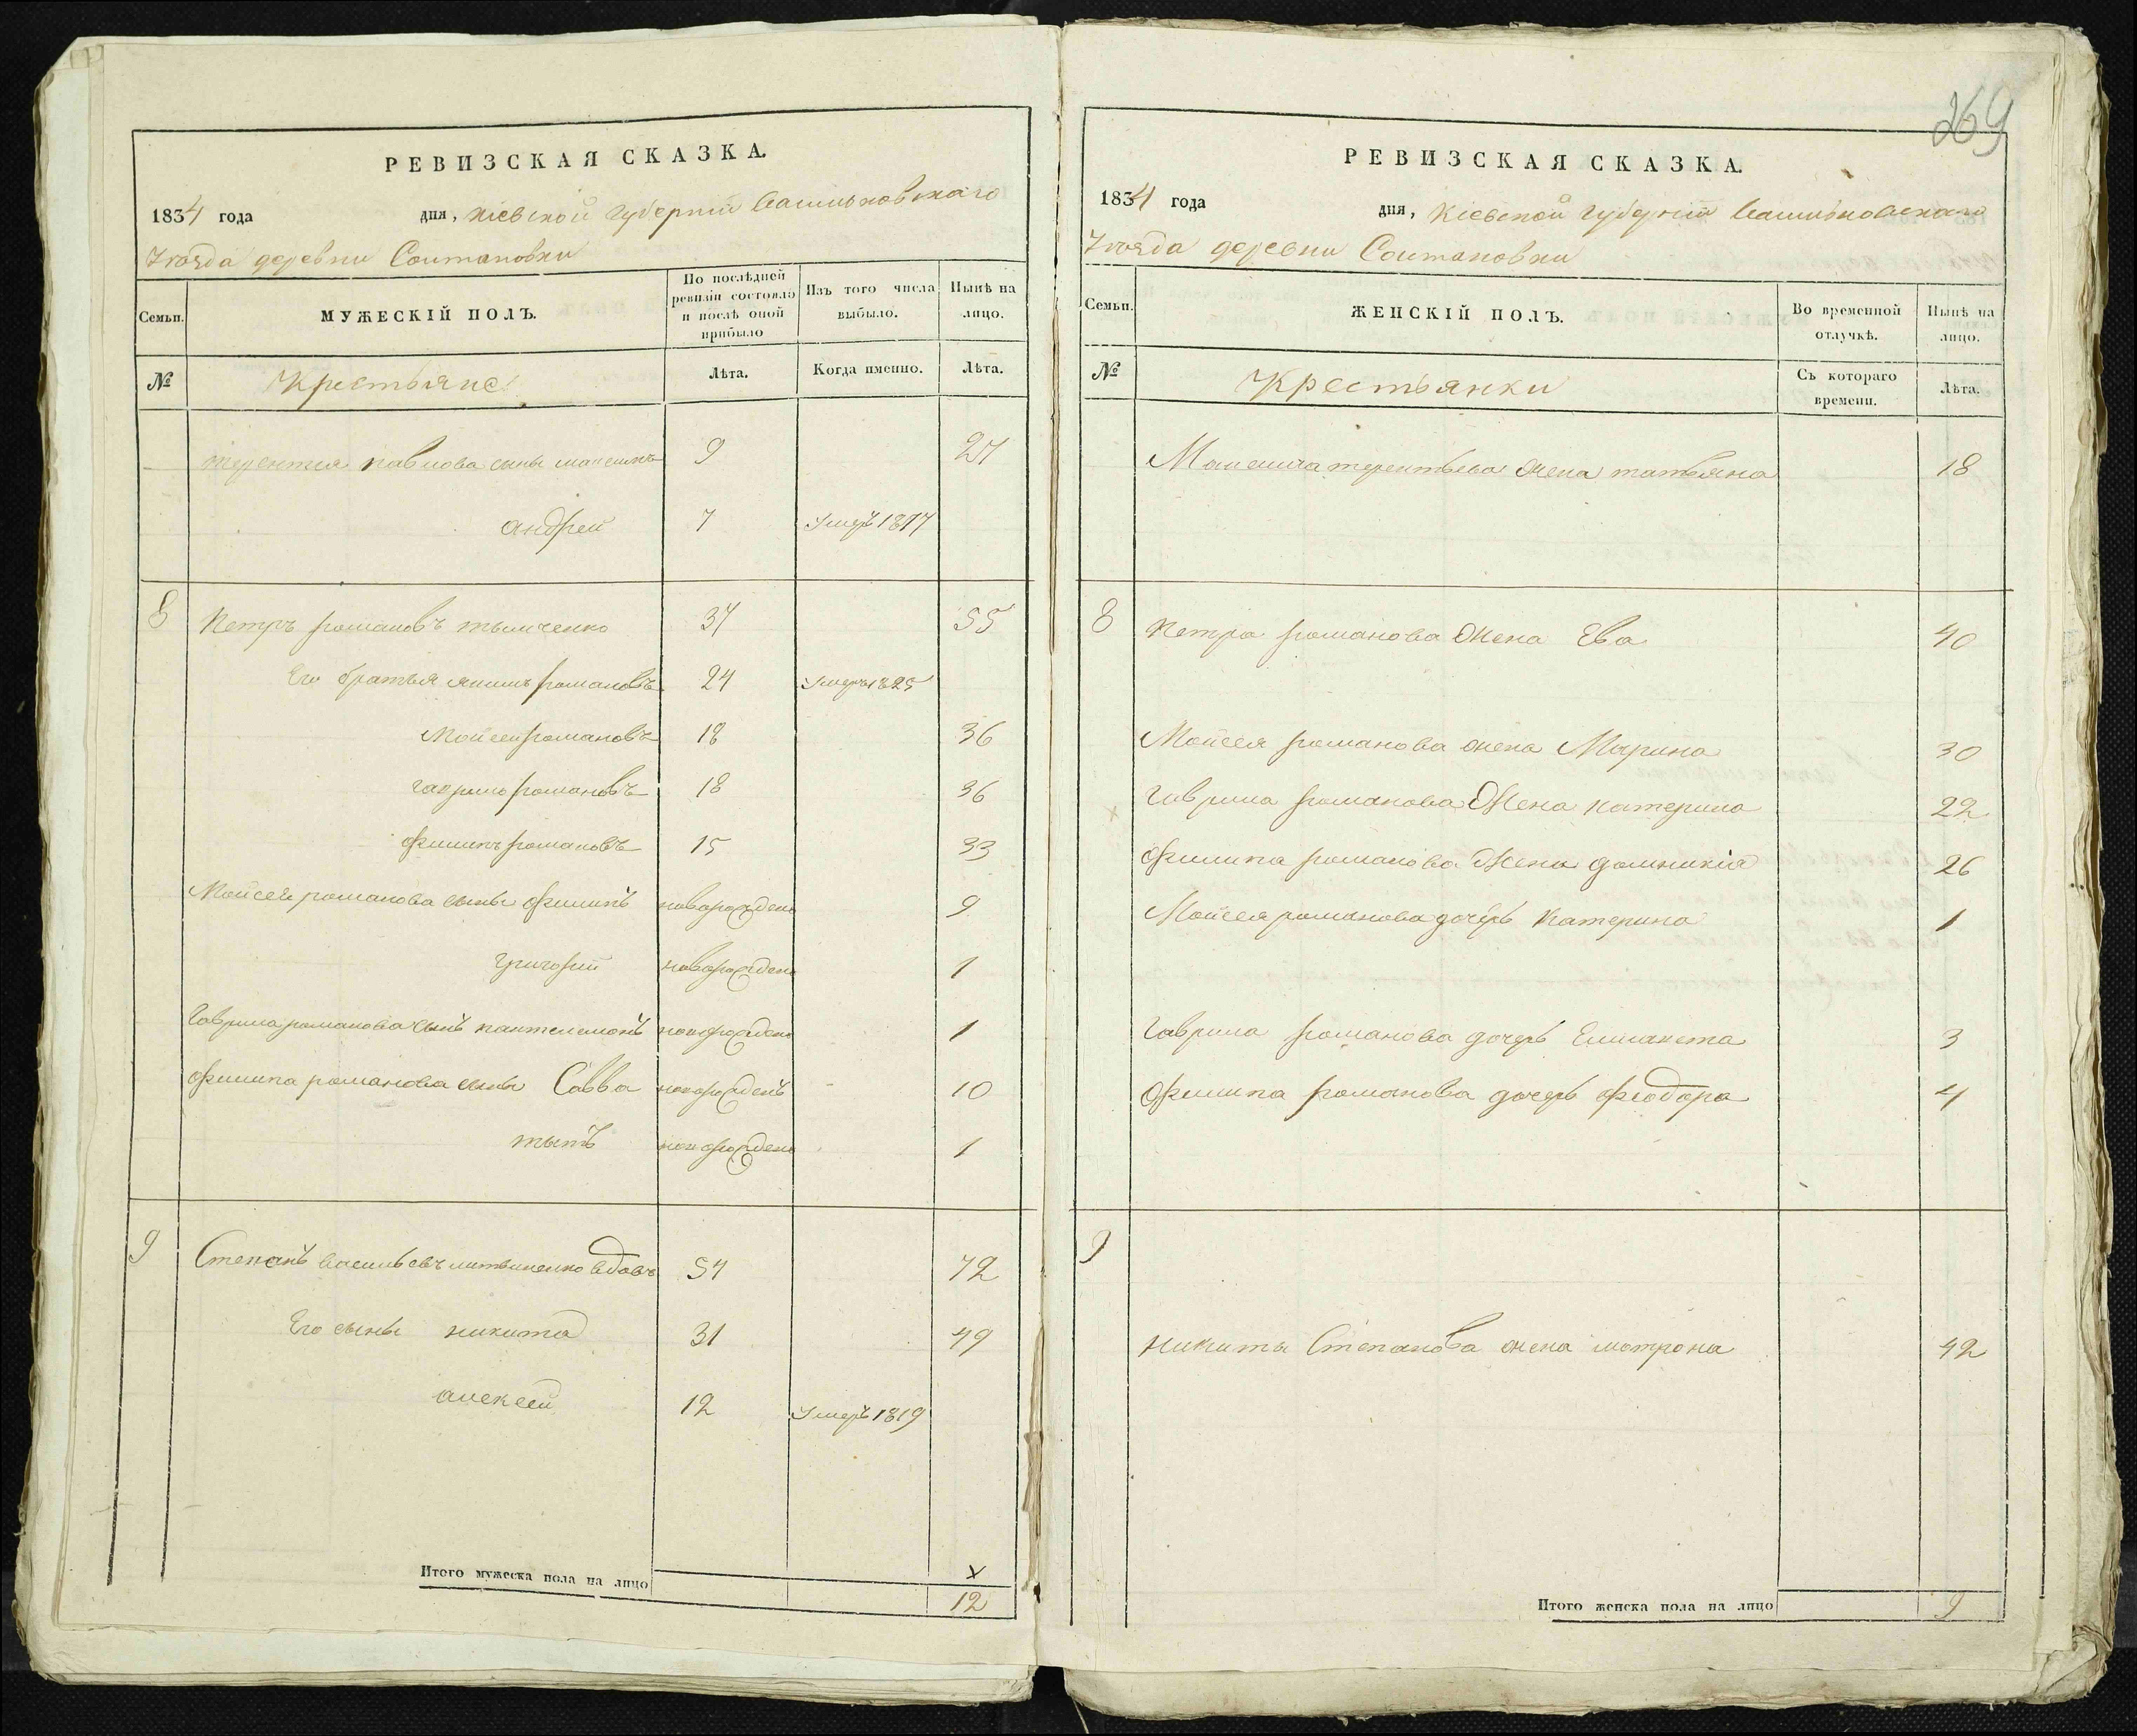 269
РЕВИЗСКАЯ СКАЗКА.
1834 года дня, Кіевской губерніи Васильковскаго
Уѣзда деревни Солтановки
Семьи. МУЖЕСКІЙ ПОЛЪ. По послѣдней ревизіи состояло и послѣ оной прибыло Изъ того числа выбыло. Нынѣ на лицо.
№ Крестьяне Лѣта. Когда именно. Лѣта.
терентия павлова сыны максимъ 9 27
андрей 7 Умеръ 1817
8 Петръ романовъ тымченко 37 55
Его братья якимъ романовъ 24 Умеръ 1825
Мойсей романовъ 18 36
гаврило романовъ 18 36
филипъ романовъ 15 33
Мойсея романова сыны филипъ новорожденъ 9
григорій новорожденъ 1
Гаврила романова сынъ пантелемонъ новорожденъ 1
филипа романова сыны Савва новорожденъ 10
тытъ новорожденъ 1
9 Степанъ васильевъ литвиненко вдовъ 54 72
Его сыны никита 31 49
алексей 12 Умеръ 1819
Итого мужеска пола на лицо 12
РЕВИЗСКАЯ СКАЗКА.
1834 года дня, Кіевской губерніи Васильковскаго
Уѣзда деревни Солтановки
Семьи. ЖЕНСКІЙ ПОЛЪ. Во временной отлучкѣ. Нынѣ на лицо.
№ Крестьянки Съ котораго времени. Лѣта.
Максима терентьева жена татьяна 18
8 Петра романова жена Ева 40
Мойсея романова жена Марина 30
Гаврила романова Жена катерина 22
Филипа романова Жена домникія 26
Мойсея романова дочерь Катерина 1
Гаврила романова дочерь Елисавета 3
Филипа романова дочерь феодора 4
9
никиты Степанова жена мотрона 42
Итого женска пола на лицо 9